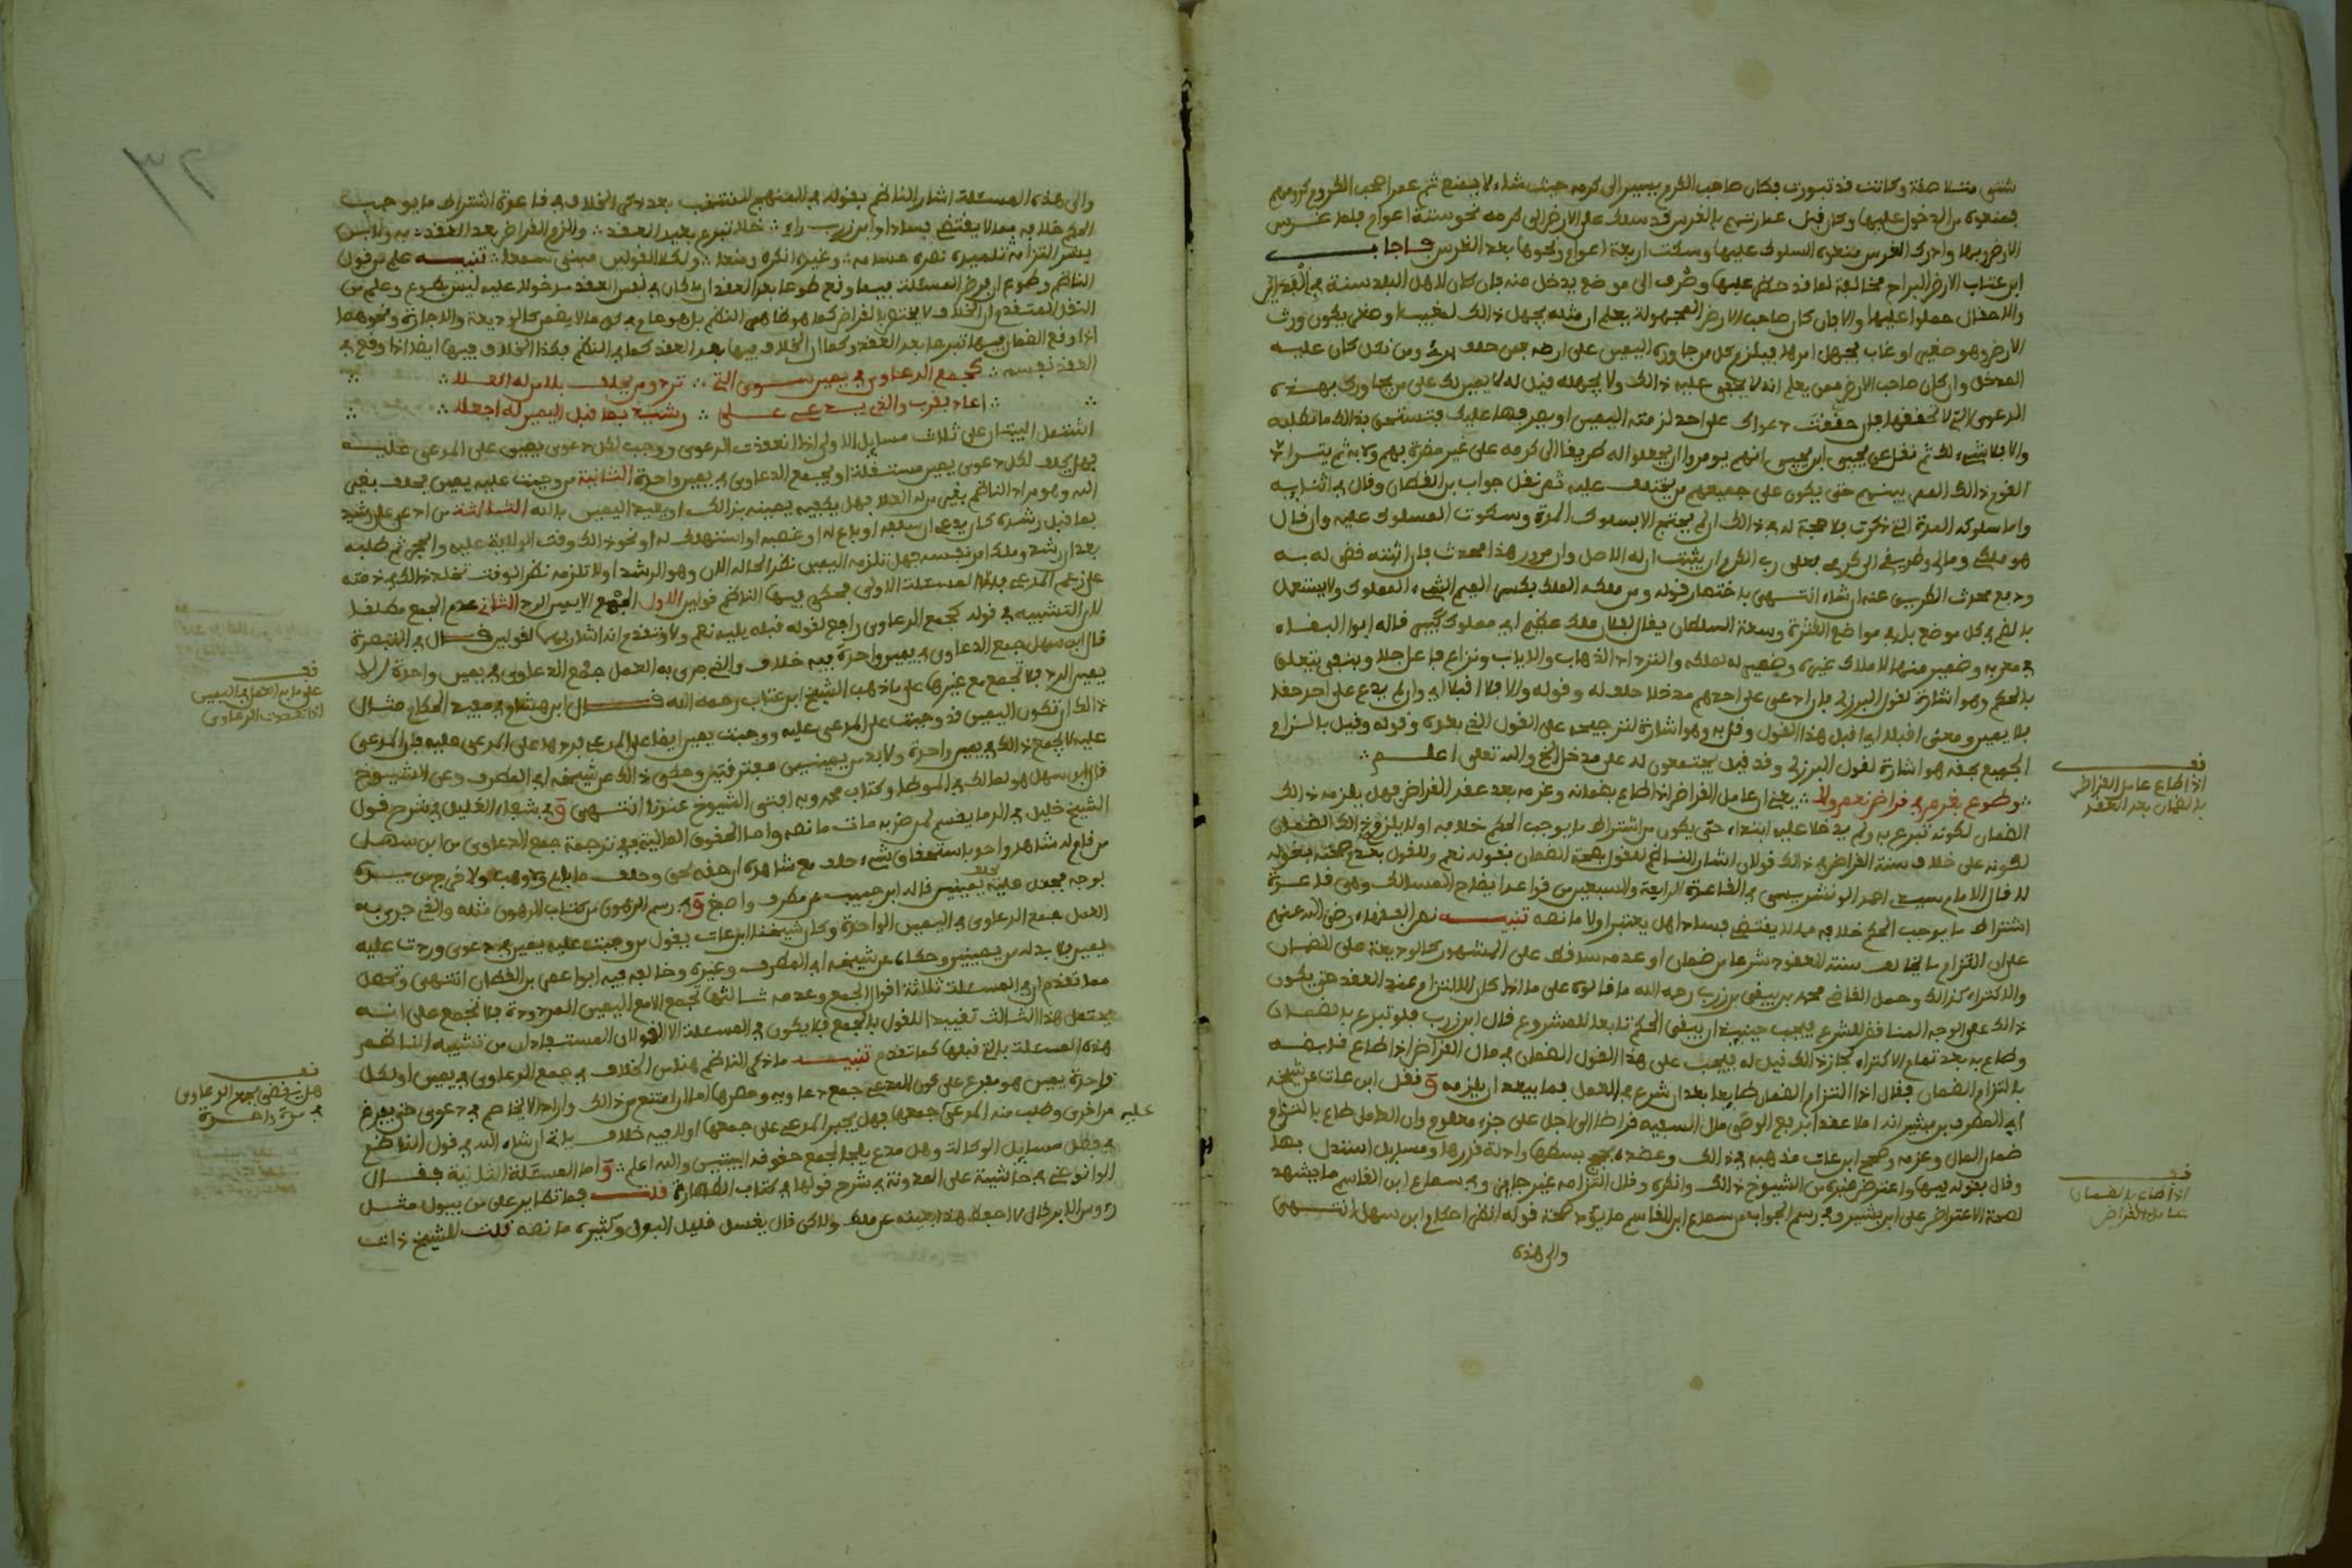 شتى متلاصقة وكانت قد تبورت فكان صاحب الكرم يسير الى كرمه حيث شاء لا يمنع ثم عمر اصحاب الكروم كرومهم
فمنعوه من الدخول عليها وكان قبل عمارتهم بالغرس قد سلك على الارض الى كرمه نحو ستة اعوام فلما غرس
الارض ربها وادرك الغرس منعوه السلوك عليها وسكت اربعة اعوام ونحوها بعد الغرس فاجاب
ابن عتاب الارض البراح مخالفة لما قد حظر عليها وطرف الى موضع يدخل منه فان كان لاهل البلد سنة في
والاحتفال حملوا عليها والا فان كان صاحب الارض المجهولة يعلم ان مثله يجهل ذالك لمغيب او صغر يكون ورث
الارض وهو صغير او غاب فجهل امرها فيلزم كل من جاوره اليمين على ارضه فمن حلف برئ ومن نكل كان عليه
المدخل وان كان صاحب الارض ممن يعلم انه لا يخفى عليه ذالك ولا يجهله قيل له لا يمين لك على من يجاورك بهذه
الدعوى التي لا تحققها فان حققت دعواك على احد لزمته اليمين او يصرفها عليك فتستحق بذالك ما تطلبه
والا فلا شيء لك ثم نقل عن يحيى ابن يحيى انهم يومروا ان يجعلوا له طريقا الى كرمه على غير مضرة بهم ولا به ثم يتراد
القوم ذالك الممر بينهم حتى يكون على جميعهم من يختلف عليه ثم نقل جواب بن القطان وقال في اثنايه
واما سلوكه المدة التي ذكرت فلا حجة له في ذالك ان لم يحتج الا بسلوك المدة وسكوت المسلوك عليه وان قال
هو ملكي ومالي وطريقي الى كرمي فعلى رب الكرم ان يثبت ان له الاصل وان مرور هذا محدث فان اثبته قضى له به
ودفع محدث الطريق عنه ان شاء انتهى باختصار قوله ومن ملكه الملك بكسر الميم الشيء المملوك ولا يستعمل
بالضم في كل موضع بل في مواضع الكثرة وسعة السلطان يقال لفلان ملك عظيم اي مملوك كثير قاله ابو البقاء
في معربه وضمير منها لاملاك غيره وضمير له لملكه والترداد الذهاب والاياب ونزاع فاعل جلا وينفي يتعلق
بالحكم وهو اشارة لقول البرزلي فان ادعى على احدهم مدخلا حلف له وقوله والا فلا اقبلا اي وان لم يدع على احد حقه
بلا يمين ومعنى اقبلا اي اقبل هذا القول وقل به وهو اشارة لترجيحه على القول الذي بعده وقوله وقيل بالنزاع
الجميع بحقه هو اشارة لقول البرزلي وقد قيل يجتمعون له على مدخل الخ والله تعالى اعلم
وطوع بغرم في قراض نعم ولا يعني ان عامل القراض اذا طاع بضمانه وغرمه بعد عقد القراض فهل يلزمه ذالك
الضمان لكونه تبرع به ولم يدخلا عليه ابتداء حتى يكون من اشتراط ما يوجب الحكم خلافه اولا يلزم ذالك الضمان
لكونه على خلاف سنة القراض في ذالك قولان اشار الناظم للقول بصحة الضمان بقوله نعم وللقول بعدم صحته بقوله
لا قال الامام سيدي احمد الونشريسي في القاعدة الرابعة والسبعين من قواعد ايضاح المسالك وهي قاعدة
اشتراط ما يوجب الحكم خلافه مما لا يقتضي فسادا هل يعتبر اولا ما نصه تنبيه نص الفقهاء رضي الله عنهم
على ان التزام ما يخالف سنة العقود شرعا من ضمان او عدمه ساقط على المشهور كالوديعة على الضمان
والاكتراء كذالك وحمل القاضي محمد بن يبقى بن زرب رحمه الله ما قالوه على ما اذا كان الالتزام عند العقد حتى يكون
ذالك على الوجه المناقض للشرع فيجب حينئذ ان يبقى الحكم تابعا للمشروع قال ابن زرب فلو تبرع بالضمان
وطاع به بعد تمام الاكتراء لجاز ذالك قيل له فيجب على هذا القول الضمان في مال القراض اذا طاع قابضه
بالتزام الضمان فقال اذا التزام الضمان طايعا بعد ان شرع في العمل فما يبعد ان يلزمه ونقل ابن عات عن شيخه
ابي المطرف بن بشير انه املا عقدا بدفع الوصي مال السفيه قراضا الى اجل على جزء معلوم وان العامل طاع بالتزام
ضمان المال وغرمه وصحح ابن عات مذهبه في ذالك وعضده بحجج بسطها وادلة قررها ومسايل استدل بها
وقال بقوله فيها واعترض غيره من الشيوخ ذالك وانكره وقال التزامه غير جايز وفي سماع ابن القاسم ما يشهد
لصحة الاعتراض على ابن بشير وفي رسم الجواب من سماع ابن القاسم ما يؤيد صحة قوله انظر احكام ابن سهل انتهى
والى هذه
قف
اذا طاع عامل القراض
بالضمان بعد العقد
قف
اذا طاع بالضمان
عامل القراض
والى هذه المسئلة اشار الناظم بقوله في المنهج المنتخب بعد ذكر الخلاف في قاعدة اشتراط ما يوجب
الحكم خلافه مما لا يقتضي فسادا وابن زرب راى خلا تبرع بعيد العقد والزم القراض بعد العقد به ولابن
بشير التزامه تلميذه نصره مسامه وغيره انكره ومنعا ولكلا القولين مبنى سمعا تنبيه علم من قول
الناظم وطوع ان فرض المسئلة فيما وقع طوعا بعد العقد ان ما كان في نفس العقد مدخولا عليه ليس بطوع وعلم من
النقل المتقدم ان الخلاف لا يختص بالقراض كما هو ظاهر النظم بل هو عام في كل ما لا يضمن كالوديعة والاجارة ونحوهما
اذا وقع الضمان فيها تبرعا بعد العقد وكما ان الخلاف فيها بعد العقد كما في النظم فكذا الخلاف فيها ايضا اذا وقع في
العقد نفسه كجمع الدعاوى في يمين سوى التي ترد ومن يحلف بلا من له العلا
اعاد بقرب والذي يدعي على رشيد بما قبل اليمين له اجعلا
اشتمل البيتان على ثلاث مسايل الاولى اذا انعقدت الدعوى ووجب لكل دعوى يمين على المدعى عليه
فهل يحلف لكل دعوى يمين مستقلة او يجمع الدعاوى في يمين واحدة الثانية من وجبت عليه يمين فحلف بغير
الله وهو مراد الناظم بغير من له العلا فهل يكفيه يمينه بذالك او يعيد اليمين بالله الثالثة من ادعى على رشيد
بما قبل رشده كان يدعي ان سلفه او باع له او غصبه او استهلك له او نحو ذالك وقت الولاية عليه والحجر ثم طلبه
بعد ان رشد وملك امر نفسه فهل تلزمه اليمين نظر الحاله الان وهو الرشد اولا تلزمه نظر لوقت تخلد ذالك في ذمته
على زعم المدعي فاما المسئلة الاولى فحكى فيها الناظم قولين الاول الجمع الا يمين الرد الثاني عدم الجمع مطلقا
لان التشبيه في قوله كجمع الدعاوى راجع لقوله قبله يليه نعم ولا وتقدم انه اشار بهما لقولين قال في التبصرة
قال ابن سهل جمع الدعاوى في يمين واحدة فيه خلاف والذي جرى به العمل جمع الدعاوى في يمين واحدة الا
يمين الرد فلا تجمع مع غيرها على ما ذهب الشيخ ابن عتاب رحمه الله قال ابن هشام في مفيد الحكام مثال
ذالك ان تكون اليمين قد وجبت على المدعى عليه ووجبت يمين ايضا على المدعي فردها على المدعى عليه فان المدعى
عليه لا يجمع ذالك في يمين واحدة ولا بد من يمينين مفترقتين وحكى ذالك عن شيخه ابي المطرف وعن الشيوخ
قال ابن سهل هو لمالك في الموطا وكتاب محمد وبه افتى الشيوخ عندنا انتهى وفي شفاء الغليل في شرح قول
الشيخ خليل في الدما يقسم لمن ضربه مات ما نصه واما الحقوق المالية ففي ترجمة جمع الدعاوى من ابن سهل
من قام له شاهد واحد باستحقاق شيء حلف مع شاهده ان حقه لحق وحلف ما باع ولا وهب ولا خرج من يده
بوجه فجعل عليه يمينين قاله ابن حبيب عن مطرف واصبغ وفي رسم الرهون من كتاب الرهون مثله والذي جرى به
العمل جمع الدعاوى في اليمين الواحدة وكان شيخنا ابن عتاب يقول من وجبت عليه يمين في دعوى وردت عليه
يمين فلا بد له من يمينين وحكاه عن شيخه ابي المطرف وغيره وخالفه فيه ابو عمر بن القطان انتهى وتحصل
مما تقدم ان في المسئلة ثلاثة اقوال الجمع وعدمه ثالثها تجمع الا مع اليمين المردودة فلا تجمع على انه
يحتمل هذا الثالث تقييدا للقول بالجمع فلا يكون في المسئلة الا القولان المستفادان من تشبيه الناظم
هذه المسئلة بالتي قبلها كما تقدم تنبيه ما ذكر الناظم هنا من الخلاف في جمع الدعاوى في يمين او لكل
واحدة يمين هو مفرع على كون المدعي جمع دعاويه وحصرها اما ان امتنع من ذالك واراد الا يخاصم في دعوى حتى يفرغ
من اخرى وطلب منه المدعى عليه جمعها فهل يجبر المدعي على جمعها اولا فيه خلاف ياتي ان شاء الله في قول الناظم
في فصل مسايل الوكالة وهل مدع يلجا لجمع حقوقه اليمين والله اعلم واما المسئلة الثانية فقال
الوانوغي في حاشيته على المدونة في شرح قولها في كتاب الطهارة قلت فما تطاير على من بول مثل
رءوس الابر قال لا احفظ هذا بعينه عن ملك ولاكن قال يغسل قليل البول وكثيره ما نصه قلت للشيخ ذات
قف
على ما به العمل في اليمين
اذا تعددت الدعاوى
قف
هل يقضى بجمع الدعاوى
في مرة واحدة
٣٢